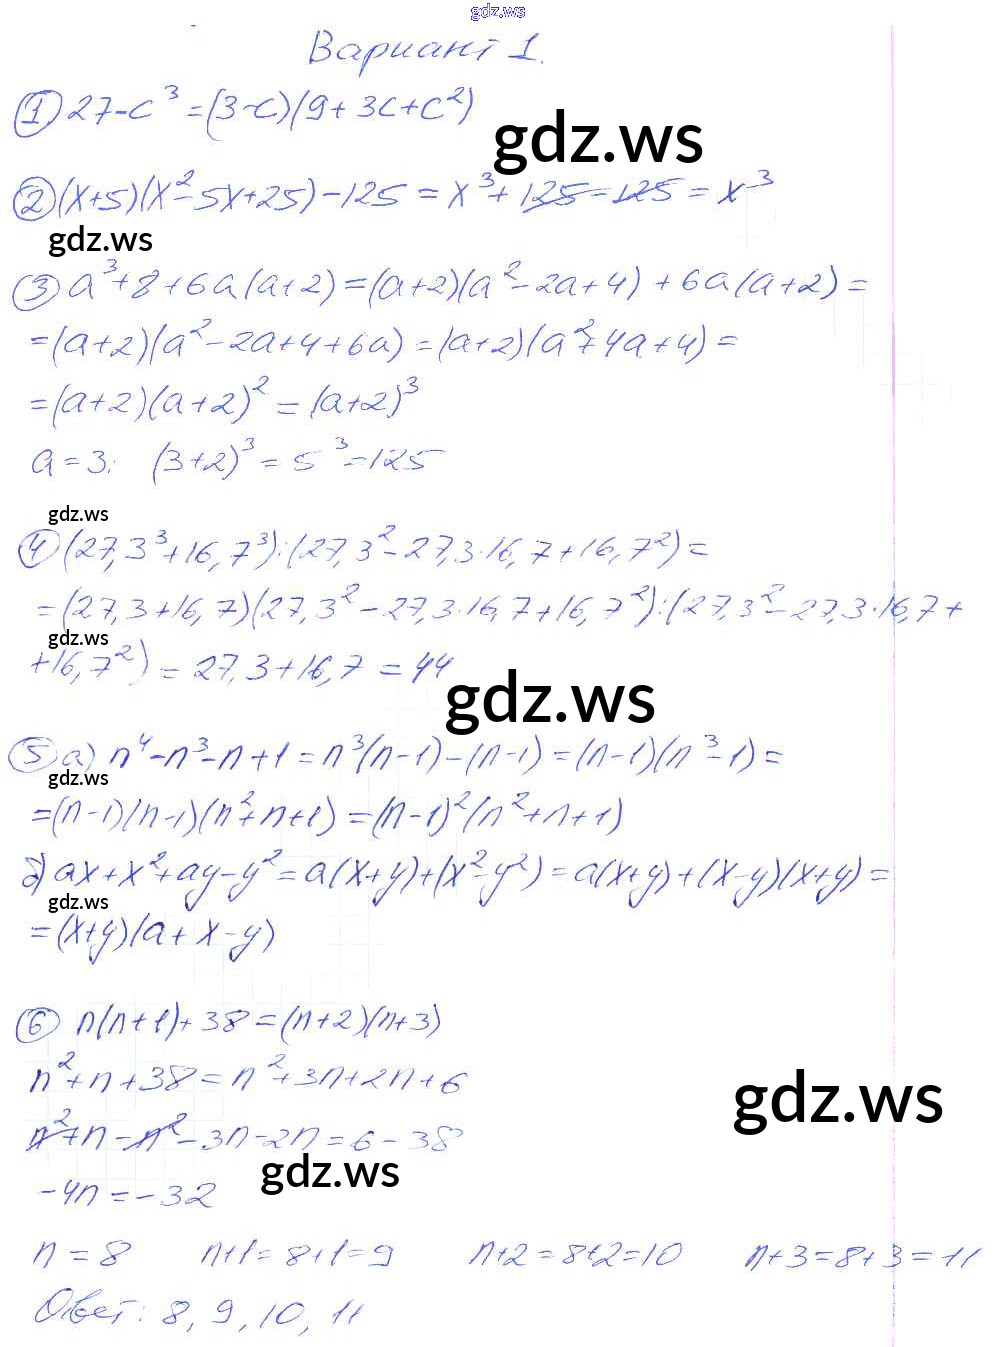 gdz.ws
Вариант 1.
① 27-c³=(3-c)(9+3c+c²)
gdz.ws
② (x+5)(x²-5x+25)-125=x³+125-125=x³
gdz.ws
③ a³+8+6a(a+2)=(a+2)(a²-2a+4)+6a(a+2)=
=(a+2)(a²-2a+4+6a)=(a+2)(a²+4a+4)=
=(a+2)(a+2)²=(a+2)³
a=3: (3+2)³=5³=125
gdz.ws
④ (27,3³+16,7³):(27,3²-27,3·16,7+16,7²)=
=(27,3+16,7)(27,3²-27,3·16,7+16,7²):(27,3²-27,3·16,7+
gdz.ws
+16,7²)=27,3+16,7=44
gdz.ws
⑤ а) n⁴-n³-n+1=n³(n-1)-(n-1)=(n-1)(n³-1)=
gdz.ws
=(n-1)(n-1)(n²+n+1)=(n-1)²(n²+n+1)
б) ax+x²+ay-y²=a(x+y)+(x²-y²)=a(x+y)+(x-y)(x+y)=
gdz.ws
=(x+y)(a+x-y)
⑥ n(n+1)+38=(n+2)(n+3)
n²+n+38=n²+3n+2n+6
gdz.ws
n²+n-n²-3n-2n=6-38
gdz.ws
-4n=-32
n=8 n+1=8+1=9 n+2=8+2=10 n+3=8+3=11
Ответ: 8, 9, 10, 11